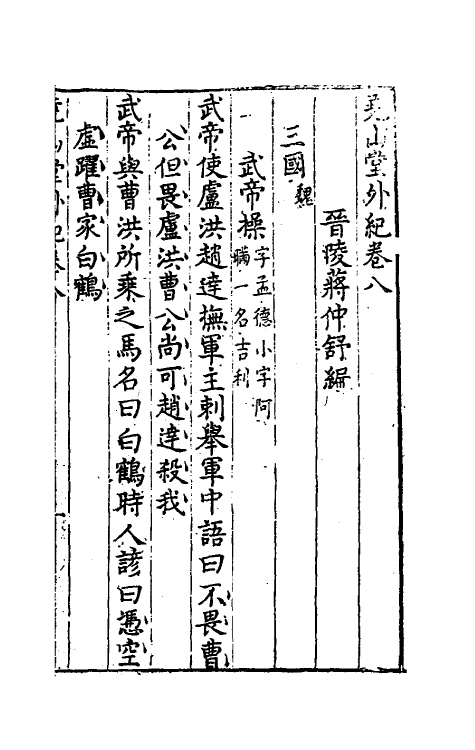 堯山堂外紀卷八
晉陵蔣仲舒編
三國魏
武帝操字孟德小字阿瞞一名吉利
武帝使盧洪趙達撫軍主刺舉軍中語曰不畏曹
公但畏盧洪曹公尚可趙達殺我
武帝與曹洪所乘之馬名曰白鶴時人諺曰憑空
虛躍曹家白鶴
堯山堂外紀卷八